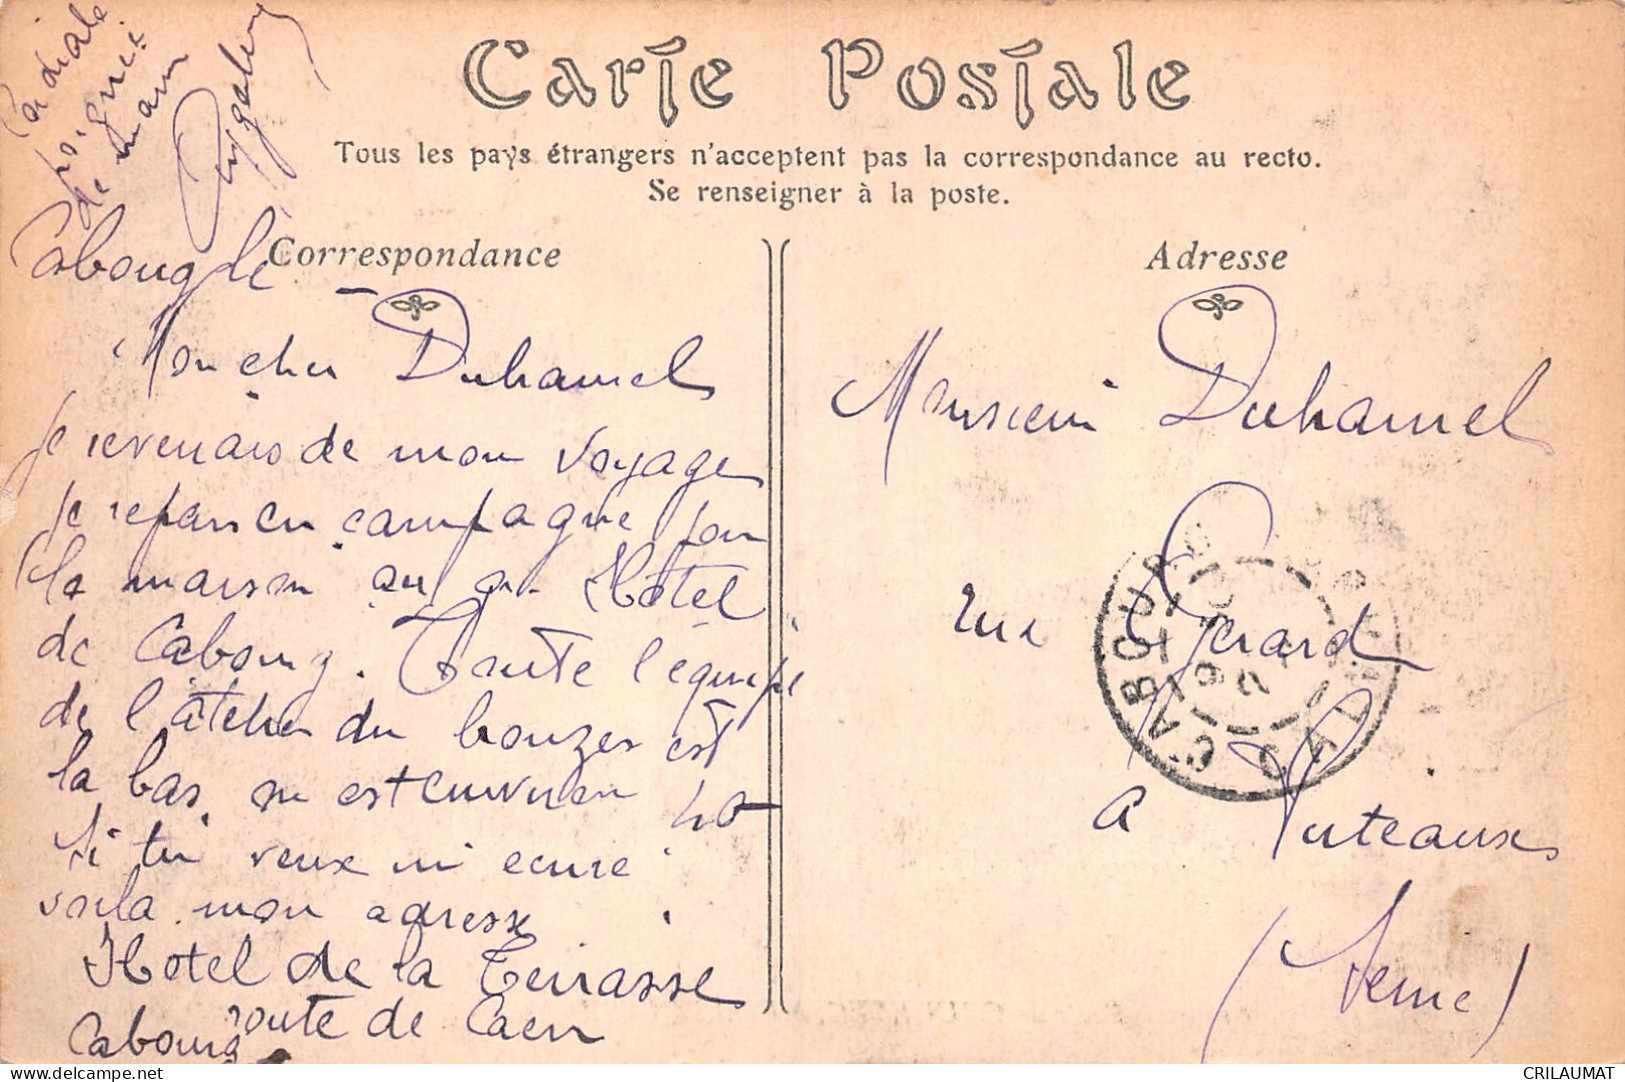 Carte Postale
Tous les pays étrangers n'acceptent pas la correspondance au recto.
Se renseigner à la poste.
Correspondance
Adresse
Cordiale
poignée
de main
Cabourg le
Mon cher Duhamel
Je revenais de mon voyage
je repars en campagne pour
la maison au gr. Hôtel
de Cabourg. Toute l'equipe
de l'atelier du bronzes est
la bas, on est environ 40
Si tu veux m'ecrire
voila mon adresse
Hotel de la Terrasse
route de Caen
Cabourg
Monsieur Duhamel
rue Gerard
a Puteaux
(Seine)
CABOURG
delcampe.net
CRILAUMAT